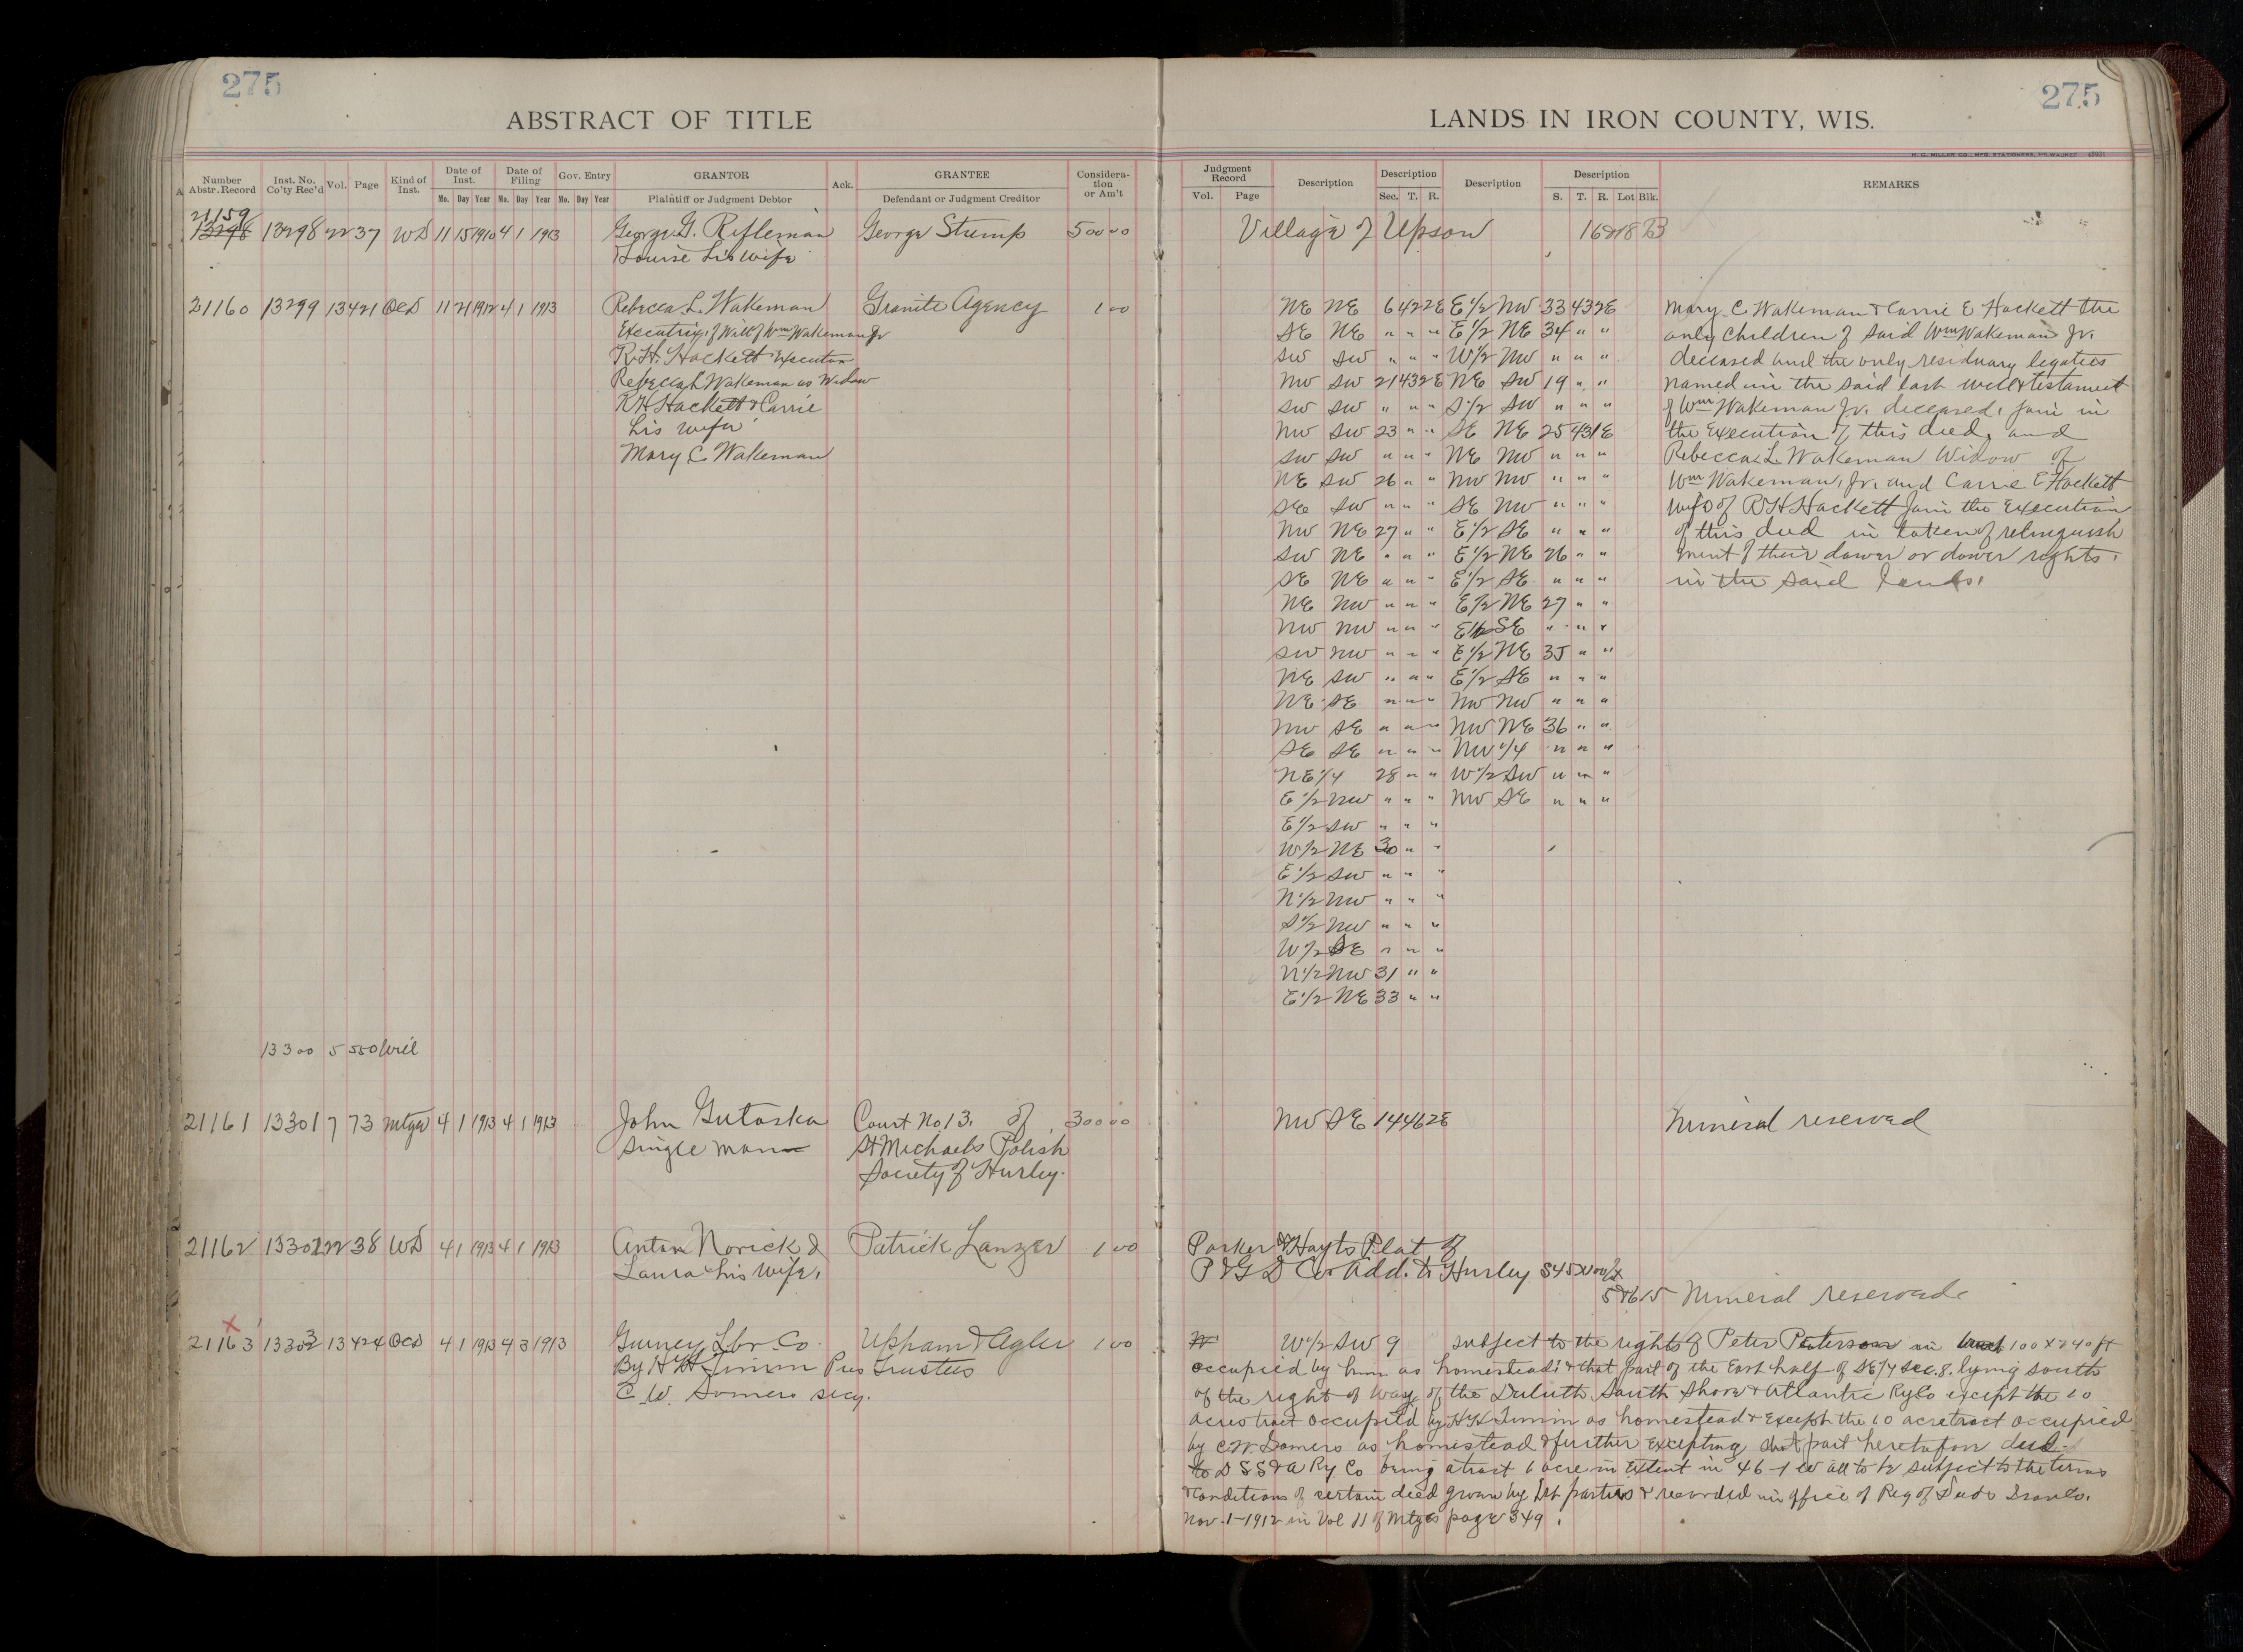 275
ABSTRACT OF TITLE
Number Abstr. Record | Inst. No. Co'ty Rec'd | Vol. | Page | Kind of Inst. | Date of Inst. Mo. Day Year | Date of Filing Mo. Day Year | Gov. Entry Mo. Day Year | GRANTOR Plaintiff or Judgment Debtor | Ack. | GRANTEE Defendant or Judgment Creditor | Considera-tion or Am't
21159
13298 13298 22 37 WD 11 15 1910 4 1 1913 George G. Rifleman George Stump 500 00
Louise his wife
21160 13299 13 421 QCD 11 21 1912 4 1 1913 Rebecca L. Wakeman Granite Agency 1 00
Executrix of Will of Wm Wakeman Jr
R.H. Hackett Executor
Rebecca L Wakeman as Widow
R H Hackett & Carrie
his wife
Mary C Wakeman
13300 5 550 Will
21161 13301 7 73 Mtge 4 1 1913 4 1 1913 John Gutoska Court No 13. of 300 00
single man St Michaels Polish
Society of Hurley.
21162 13302 22 38 WD 4 1 1913 4 1 1913 Anton Norick & Patrick Lanzer 1 00
Laura his wife,
X
21163 13303 13 424 QCD 4 1 1913 4 3 1913 Gurney Lbr Co. Upham & Agler 1 00
By H H Timm Pres Trustees
C. W. Somers secy.
275
LANDS IN IRON COUNTY, WIS.
H. C. MILLER CO., MFG. STATIONERS, MILWAUKEE
Judgment Record Vol. Page | Description | Description Sec. T. R. | Description | Description S. T. R. Lot Blk. | REMARKS
Village of Upson 16&18 B
NE NE 6 42 2E E 1/2 NW 33 43 2E Mary C Wakeman & Carrie E Hackett the
SE NE " " " E 1/2 NE 34 " " only children of said Wm Wakeman Jr.
SW SW " " " W 1/2 NW " " " deceased and the only residuary legatees
NW SW 21 43 2E NE SW 19 " " named in the said last will & testament
SW SW " " " S 1/2 SW " " " of Wm Wakeman Jr. deceased, join in
NW SW 23 " " SE NE 25 43 1E the Execution of this deed, and
SW SW " " " NE NW " " " Rebecca L Wakeman Widow of
NE SW 26 " " NW NW " " " Wm Wakeman, Jr. and Carrie E Hackett
SE SW " " " SE NW " " " wife of R H Hackett Join the Execution
NW NE 27 " " E 1/2 SE " " " of this deed in token of relinquish
SW NE " " " E 1/2 NE 26 " " ment of their dower or dower rights.
SE NE " " " E 1/2 SE " " " in the said lands.
NE NW " " " E 1/2 NE 27 " "
NW NW " " " E 1/2 SE " " "
SW NW " " " E 1/2 NE 35 " "
NE SW " " " E 1/2 SE " " "
NE SE " " " NW NW " " "
NW SE " " " NW NE 36 " "
SE SE " " " NW 1/4 " " "
NE 1/4 28 " " W 1/2 SW " " "
E 1/2 NW " " " NW SE " " "
E 1/2 SW " " "
W 1/2 NE 30 " "
E 1/2 SW " " "
N 1/2 NW " " "
S 1/2 NW " " "
W 1/2 SE " " "
N 1/2 NW 31 " "
E 1/2 NE 33 " "
NW SE 14 46 2E Mineral reserved
Parker & Hayts Plat of
P & G D Co. Add. to Hurley
5&6 15 Mineral reserved
W 1/2 SW 9 subject to the rights of Peter Peterson in 100 x 240 ft
occupied by him as homestead; & that part of the East half of SE 1/4 sec. 8. lying south
of the right of Way of the Duluth South Shore & Atlantic Ry Co except the 10
acres tract occupied by H H Timm as homestead & Except the 10 acre tract occupied
by C. W. Somers as homestead & further excepting that part heretofore deed.
to D S S & A Ry. Co being a tract 1 acre in Extent in 46-1 W all to be subject to the terms
& conditions of certain deed given by 1st parties & recorded in office of Reg of Deeds Iron Co.
Nov. 1-1912 in Vol 11 of Mtges page 349.